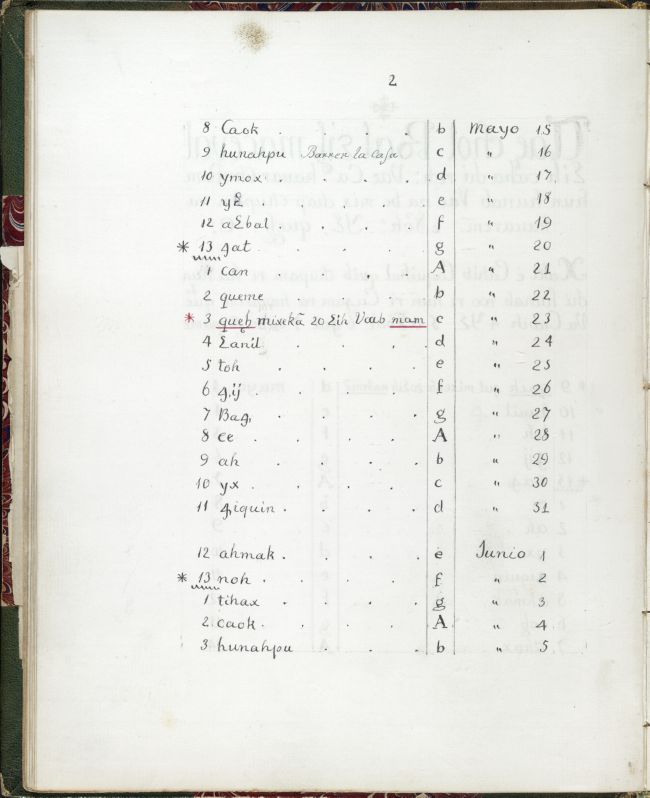 2
8 Caok . . . . b Mayo 15
9 hunahpu Barrer la Casa c " 16
10 ymox . . . . d " 17
11 yΣ . . . . e " 18
12 aΣbal . . . f " 19
* 13 ꜭat . . . . g " 20
1 can . . . . A " 21
2 queme . . . . b " 22
* 3 queh mixekã 20 Σih Vaeb mam c " 23
4 Σanil . . . . d " 24
5 toh . . . . e " 25
6 ꜭij . . . . f " 26
7 Baꜭ . . . . g " 27
8 ee . . . . A " 28
9 ah . . . . b " 29
10 yx . . . . c " 30
11 ꜭiquin . . . . d " 31
12 ahmak . . . . e Junio 1
* 13 noh . . . . f " 2
1 tihax . . . . g " 3
2 caok . . . . A " 4
3 hunahpu . . . b " 5